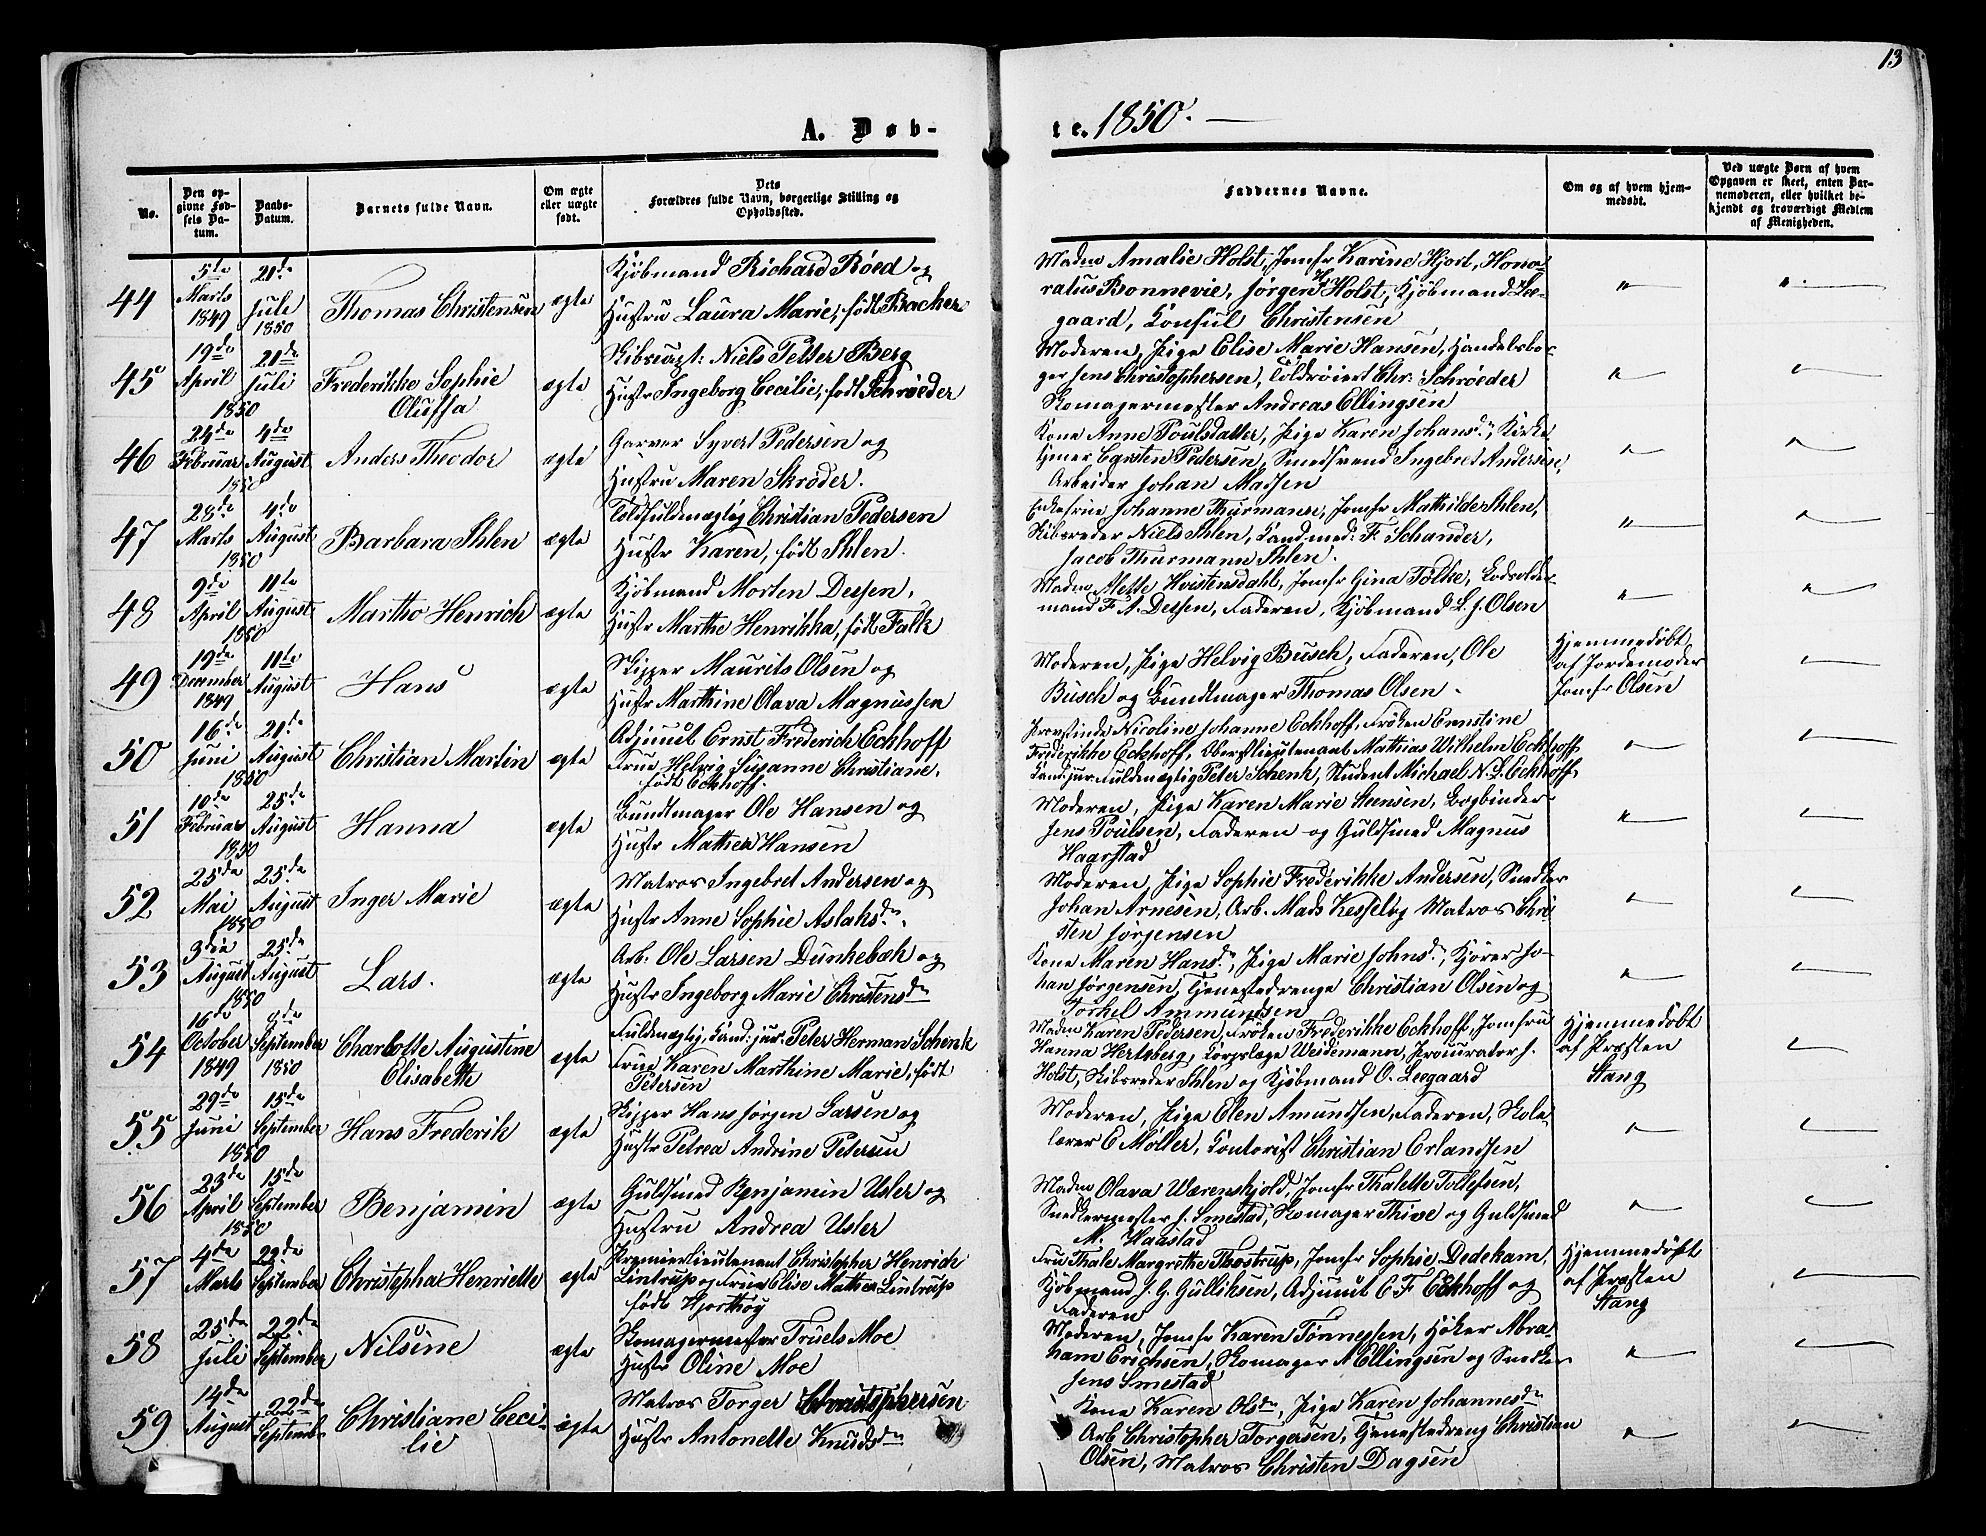 13
A. Døb-
te. 1850.
No.
Den op-
givne Fød-
sels Da-
tum.
Daabs-
Datum.
Barnets fulde Navn.
Om ægte
eller uægte
født.
Dets
Forældres fulde Navn, borgerlige Stilling og
Opholdssted.
Faddernes Navne.
Om og af hvem hjem-
medøbt.
Ved uægte Børn af hvem
Opgaven er skeet, enten Bar-
nemoderen, eller hvilket be-
kjendt og troværdigt Medlem
af Menigheden.
44
5te
Marts
1849
21de
Juli
1850
Thomas Christensen
ægte
Kjöbmand Richard Röed og
Hustru Laura Marie, født Backer
Madm Amalie Holst, Jomfr Karine Hjort, Hono-
ratus Bonnevie, Jörgen H Holst, Kjöbmand Lee-
gaard, Consul Christensen
45
19de
April
1850
21de
Juli
Frederikke Sophie
Oluffa
ægte
Skibscapt: Niels Petter Berg
Hustr Ingeborg Cecilie, født Schröeder
Moderen, Pige Elise Marie Hansen, Handelsbor-
ger Jens Christophersen, Toldroiert Chr: Schröeder
Skomagermester Andreas Ellingsen
46
24de
Februar
1850
4de
August
Anders Theodor
ægte
Garver Syvert Pedersen og
Hustru Maren Skröder.
Kone Anne Poulsdatter, Pige Karen Johansd., Kirke
tjener Pedersen, Smedsvend Ingebret Andersen,
Arbeider Johan Madsen
47
28de
Marts
1850
4de
August
Barbara Ihlen
ægte
Toldfuldmægtig Christian Pedersen
Hustr Karen, født Ihlen.
Enkefrue Johanne Thurmann, Jomfr Mathilde Ihlen,
Skibsreder Niels Ihlen, Cand. med: F. Schander,
Jacob Thurmann Ihlen.
48
9de
April
1850
11te
August
Martho Henrich
ægte
Kjöbmand Morten Dessen,
Hustr Marthe Henrikka, født Falk
Madm Mette Hvistendahl, Jomfr Gina Tölke, Lodsolder-
mand F. A. Dessen, Faderen, Kjöbmand L. J. Olsen
49
19de
December
1849
11te
August
Hans
ægte
Skipper Maurits Olsen og
Hustr Marthine Olava Magnussen
Moderen, Pige Helvig Busch, Faderen, Ole
Busch og Bundtmager Thomas Olsen.
Hjemmedøbt
af Jordemoder
Jomfr Olsen
50
16de
Juni
1850
21de
August
Christian Martin
ægte
Adjunct Ernst Frederich Eckhoff
Frue Helvig Susanne Christiane,
født Eckhoff.
Provstinde Nicoline Johanne Eckhoff, Fröken Ernstine
Frederikke Eckhoff, Oberstlieutenant Mathias Wilhelm Eckhoff
Cand. jur. Fuldmægtig Peter Schenk, Student Michael N. S. Eckhoff,
51
10de
Februar
1850
25de
August
Hanna
ægte
Bundtmager Ole Hansen og
Hustr Mathea Hansen
Moderen, Pige Karen Marie Steensen, Bogbinder
Jens Poulsen, Faderen og Guldsmed Magnus
Haarstad
52
25de
Mai
1850
25de
August
Inger Marie
ægte
Matros Ingebret Andersen og
Hustr Anne Sophie Aslaksdn.
Moderen, Pige Sophie Frederikke Andersen, Snedker
Johan Arnesen, Arb. Mads Kessel og Matros Chri-
sten Jørgensen
53
3die
August
1850
25de
August
Lars.
ægte
Arb. Ole Larsen Dunkebæk og
Hustr Ingeborg Marie Christensdn
Kone Maren Hansd., Pige Marie Johnsd., Kjörer Jo-
han Jørgensen, Tjenestedrenge Christian Olsen og
Torkel Ammundsen
54
16de
October
1849
8de
September
1850
Charlotte Augustine
Elisabeth
ægte
Fuldmægtig, Cand: jur. Peter Herman Schenk
Frue Karen Marthine Marie, født
Petersen
Madm Karen Pedersen, Fröken Frederikke Eckhoff, Jomfru
Hanna Hertzberg, Corpslæge Weidemann, Procurator J.
Holst, Skibsreder Ihlen og Kjöbmand O. Leegaard
Hjemmedøbt
af Præsten
Stang
55
29de
Juni
1850
15de
September
Hans Frederik
ægte
Skipper Hans Jörgen Larsen og
Hustr Petrea Andrine Petersen
Moderen, Pige Elen Amundsen, Faderen, Skole-
lærer C Möller, Contorist Christian Erlandsen
56
23de
April
1850
15de
September
Benjamin
ægte
Guldsmed Benjamin Usler og
Hustru Andrea Usler
Madm Olava Wærenskjold, Jomfr Thalette Tollefsen,
Snedkermester J. Smestad, Skomager Thive og Guldsmed
M. Haastad
57
4de
Marts
22de
September
Christopha Henriette
ægte
Premierlieutenant Christopher Henrich
Lintrup og Frue Elise Mathea Lintrup
født Hjorthöy
Fru Thale Margrethe Thostrup, Jomfr Sophie Dedekam,
Kjöbmand J. G. Gulliksen, Adjunct E F Eckhoff og
Faderen
Hjemmedøbt
af Præsten
Stang
58
25de
Juli
22de
September
Nilsine
ægte
Skomagermester Truels Moe
Hustr Oline Moe
Moderen, Jomfr Karen Tönnessen, Höker Abra-
ham Erichsen, Skomager A Ellingsen og Snedker
Jens Smestad
59
14de
August
22de
Septemb.
Christiane Ceci-
lie
ægte
Matros Torger Christophersen
Hustr Antonette Knudsdn
Kone Karen Olsdn, Pige Karen Johannesdn
Arb Christopher Torgersen, Tjenestedreng Christian
Olsen, Matros Christen Dagsen